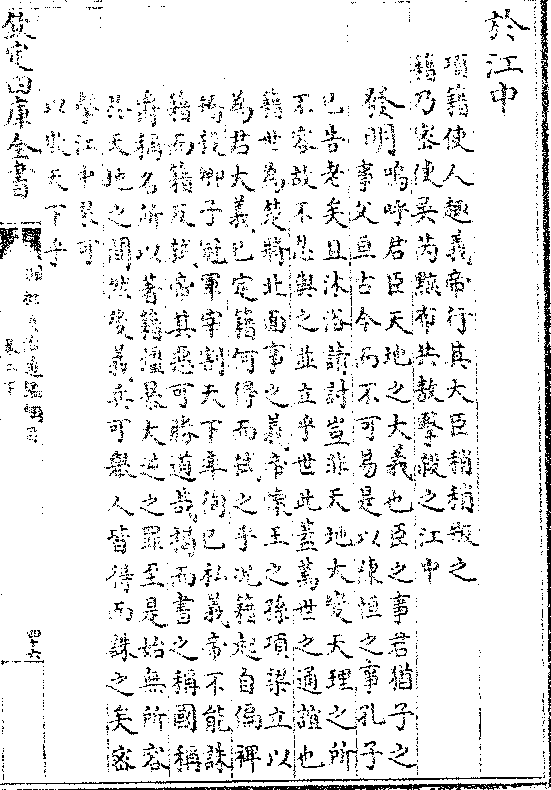 於江中
項籍使人趣義帝行其大臣稍稍叛之
籍乃密使吳芮黥布共敖擊殺之江中
發明嗚呼君臣天地之大義也臣之事君猶子之
事父亘古今而不可易是以陳恒之事孔子
已告老矣且沐浴請討豈非天地大變天理之所
不容故不忍與之並立乎世此蓋萬世之通誼也
籍世為楚將北面事之義帝懷王之孫項梁立以
為君大義已定籍何得而弑之乎况籍起自偏裨
矯殺卿子冠軍宰割天下率徇己私義帝不能誅
籍而籍反弑帝其惡可勝道哉揭而書之稱國稱
爵稱名所以著籍强暴大逆之罪至是始無所容
於天地之間然後義兵可舉人皆得而誅之矣密
擊江中果可
以欺天下乎
欽定四庫全書
御批資治通鑑綱目
卷二下
四十六